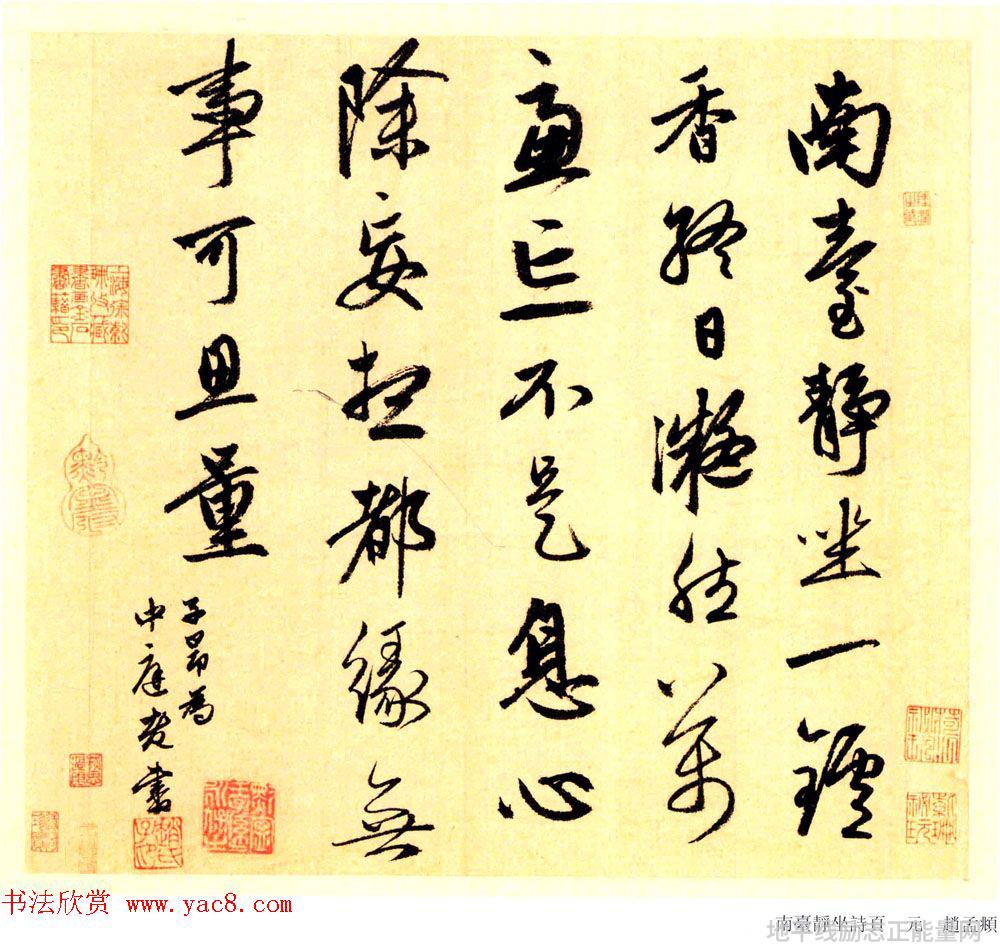 南臺靜坐一鑪
香終日凝然萬
慮亡不是息心
除妄想都緣無
事可思量
子昂為
中庭老書
南臺靜坐詩頁 元 趙孟頫
书法欣赏 www.yac8.com
地平线励志正能量网